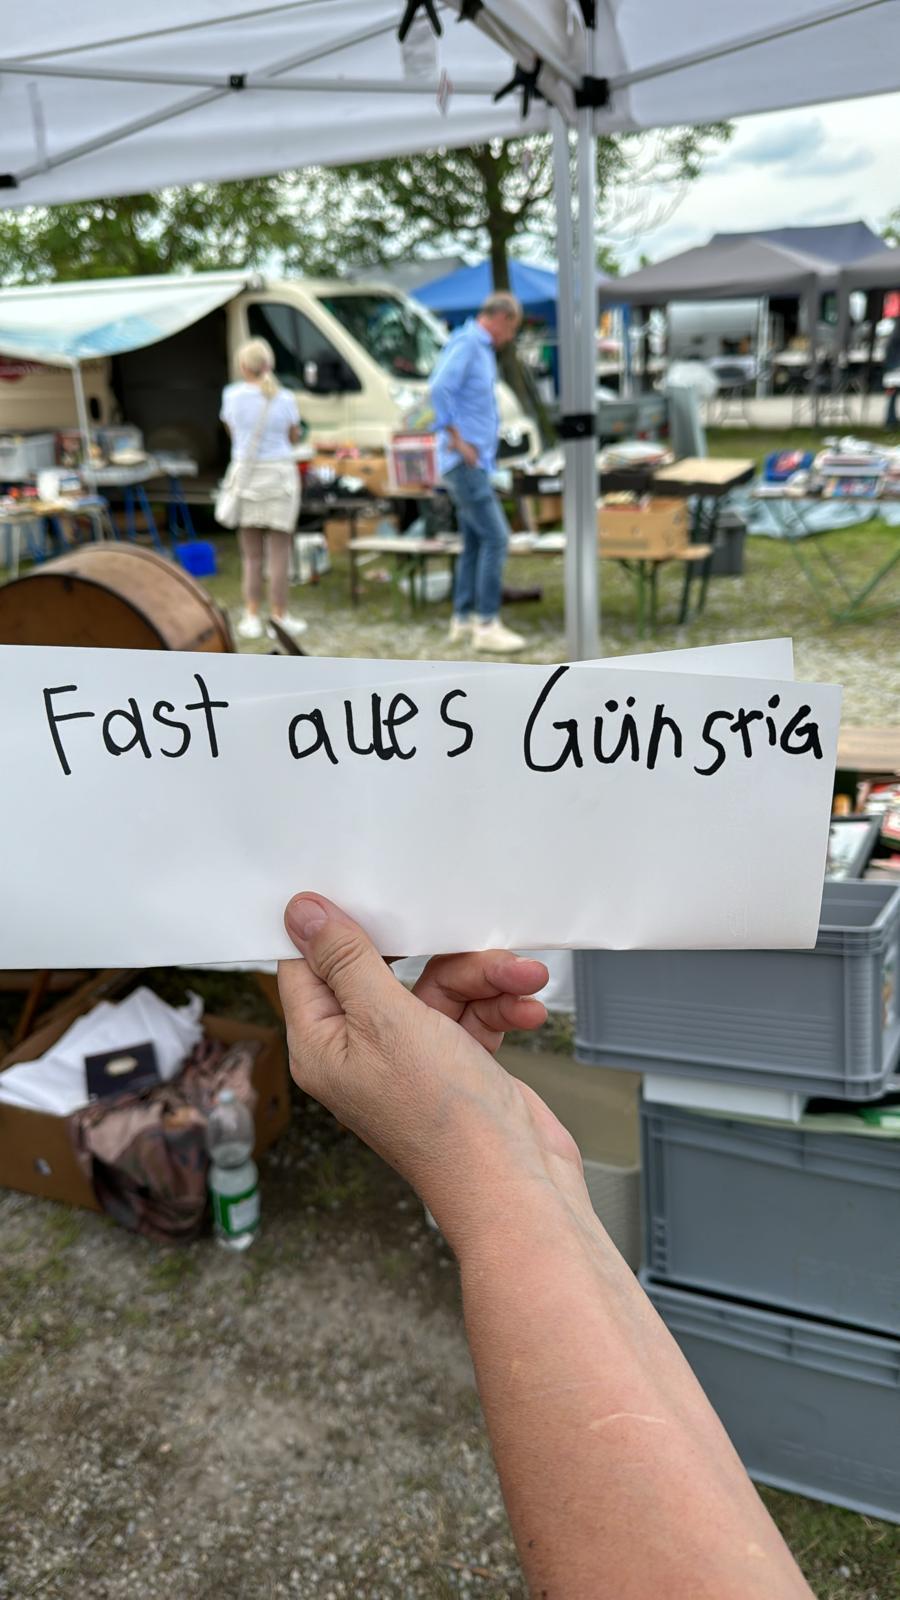 Fast alles Günstig